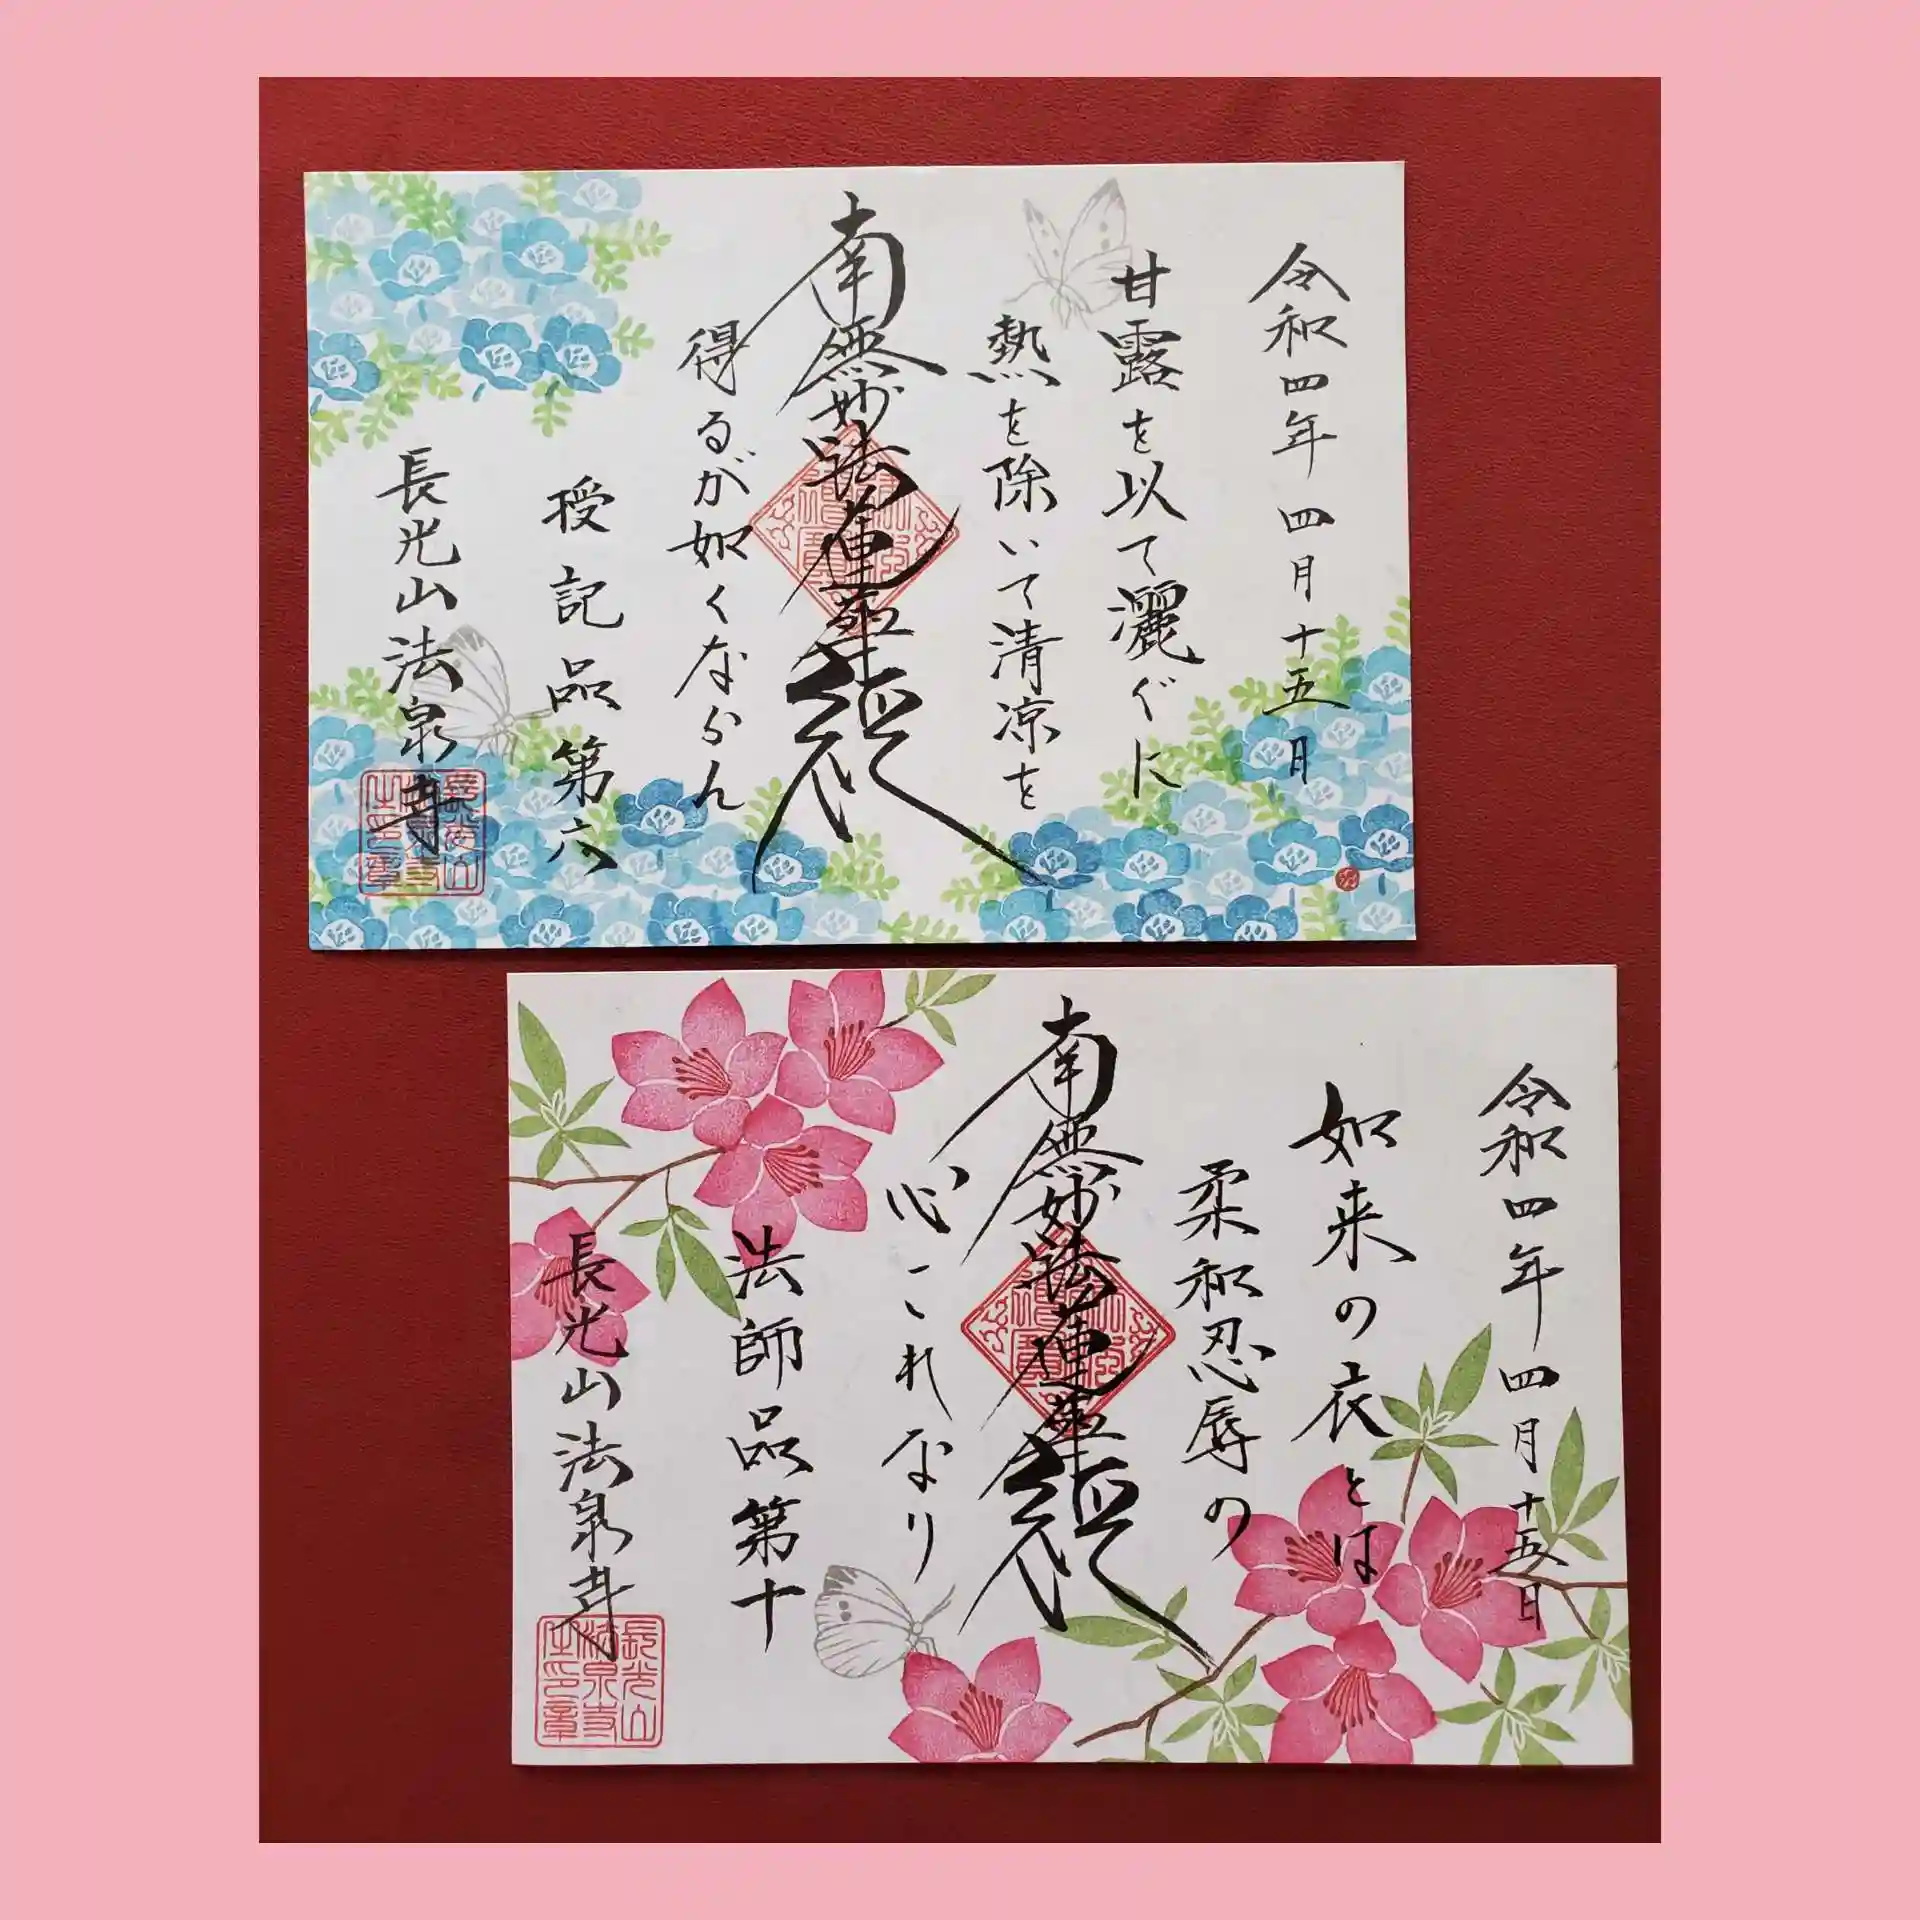 令和四年四月十五日
甘露を以て灑ぐに
熱を除いて清凉を
南無妙法蓮華経
得るが如くならん
授記品第六
長光山法泉寺
令和四年四月十五日
如来の衣とは
柔和忍辱の
南無妙法蓮華経
心これなり
法師品第十
長光山法泉寺